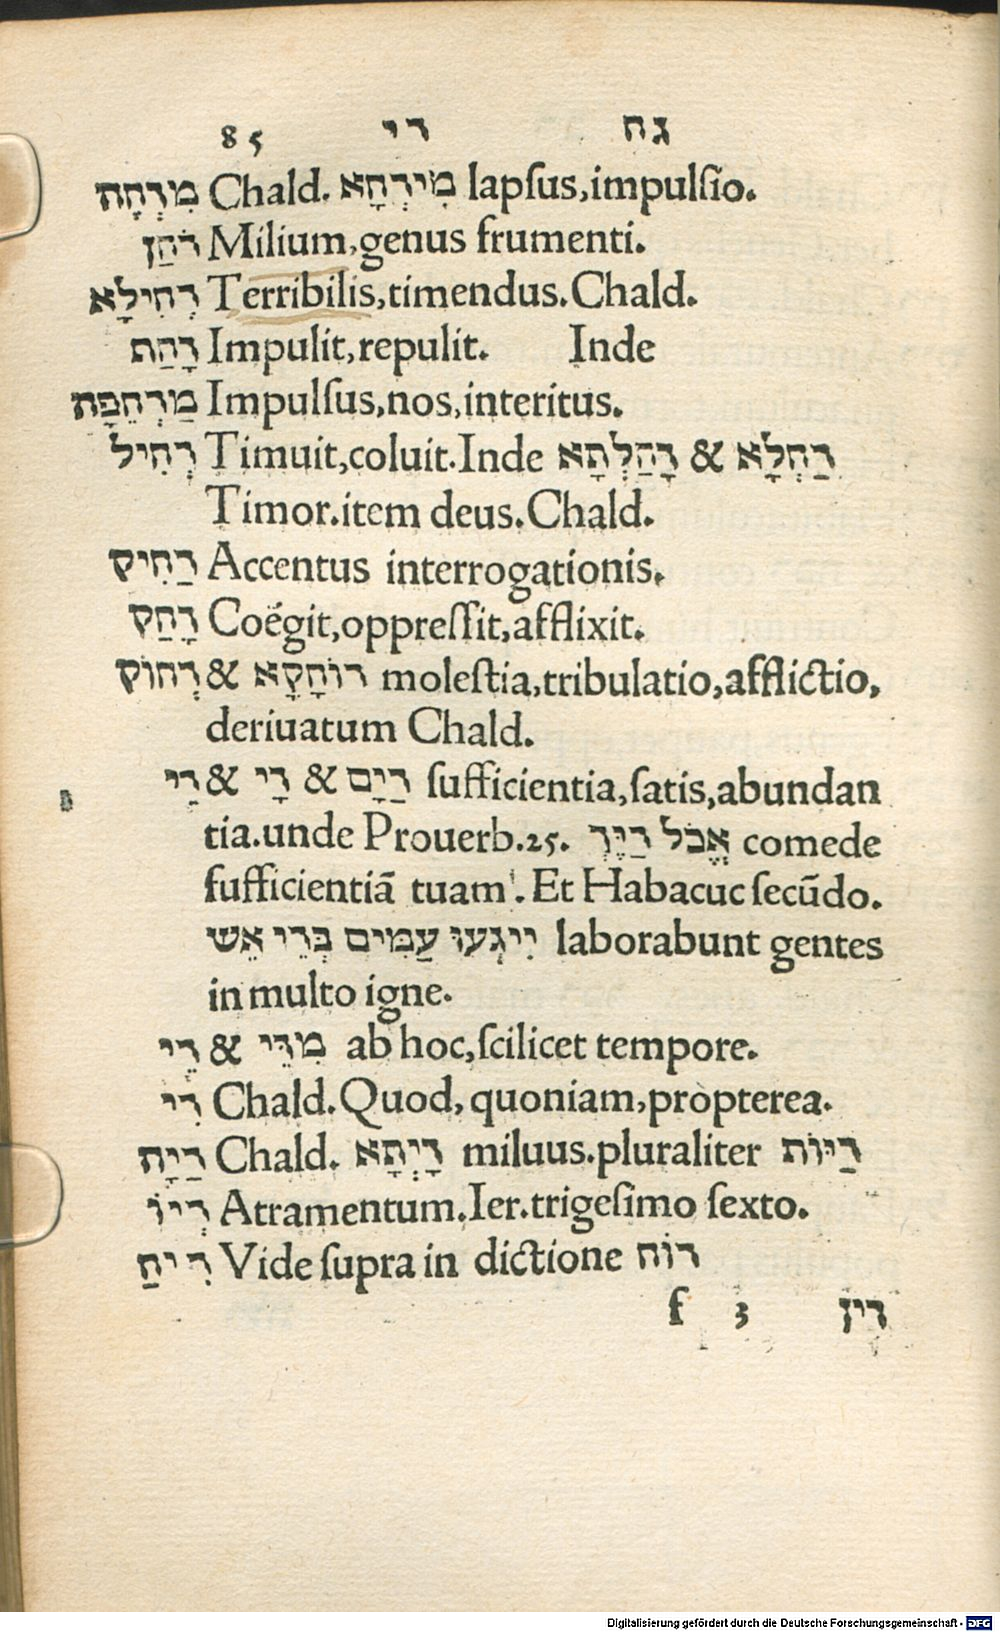 85 די גח
מִדְחֶה Chald. מִידְחָא lapſus,impulſio.
דֹחַן Milium,genus frumenti.
דְחִילָא Terribilis,timendus.Chald.
דָחַה Impulit,repulit. Inde
מַדְחֵפָה Impulſus,nos,interitus.
דְחִיל Timuit,coluit.Inde דָחַלְתָא & דַחְלָא
Timor.item deus.Chald.
דַחִיק Accentus interrogationis.
דָחַק Coëgit,oppreſſit,afflixit.
דְחוֹק & דוֹחָקָא moleſtia,tribulatio,afflictio,
deriuatum Chald.
דִי & דָי & דַיָם ſufficientia,ſatis,abundan
tia.unde Prouerb.25. אֱכֹל דַיֶךָ comede
ſufficientiã tuam. Et Habacuc ſecũdo.
יִיגְעוּ עַמִים בְּדֵי אֵשׁ laborabunt gentes
in multo igne.
דֵי & מִדֵי ab hoc,ſcilicet tempore.
דִי Chald.Quod,quoniam,propterea.
דַיָה Chald. דָיְתָא miluus.pluraliter דַיּוֹת
דְיוֹ Atramentum.Ier.trigeſimo ſexto.
דִיחַ Vide ſupra in dictione דוֹח
f 3 דִין
Digitalisierung gefördert durch die Deutsche Forschungsgemeinschaft - DFG